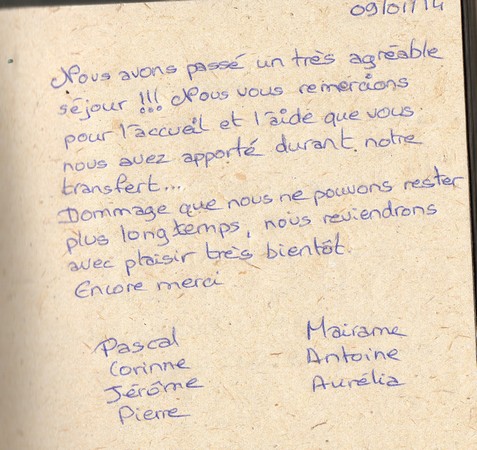 09/01/14
Nous avons passé un très agréable
séjour !!! Nous vous remercions
pour l'accueil et l'aide que vous
nous avez apporté durant notre
transfert...
Dommage que nous ne pouvons rester
plus longtemps, nous reviendrons
avec plaisir très bientôt.
Encore merci
Pascal
Corinne
Jérôme
Pierre
Mairame
Antoine
Aurélia